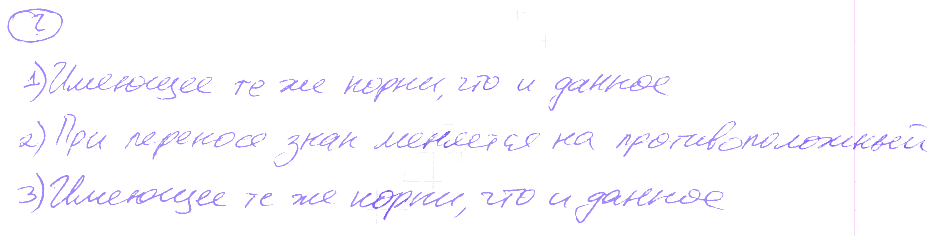 ?
1) Имеющее те же корни, что и данное
2) При переносе знак меняется на противоположный
3) Имеющее те же корни, что и данное